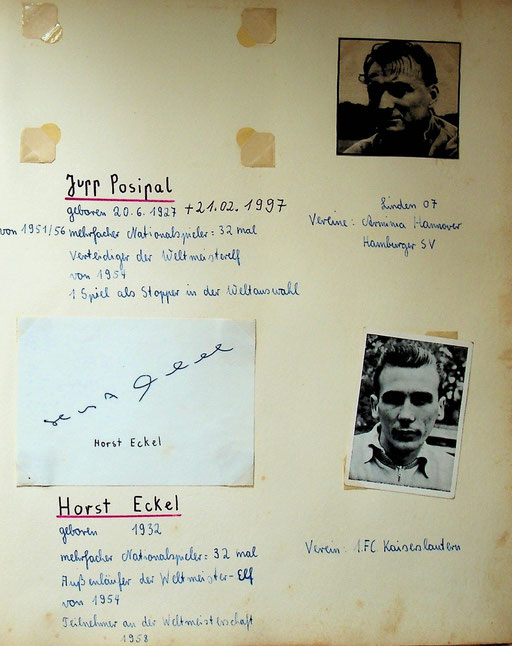 Jupp Posipal
geboren 20.6.1927 +21.02.1997
von 1951/56 mehrfacher Nationalspieler: 32 mal
Verteidiger der Weltmeisterelf
von 1954
1 Spiel als Stopper in der Weltauswahl
Linden 07
Vereine: Arminia Hannover
Hamburger SV
Horst Eckel
Horst Eckel
geboren 1932
mehrfacher Nationalspieler: 32 mal
Außenläufer der Weltmeister-Elf
von 1954
Teilnehmer an der Weltmeisterschaft
1958
Verein: 1.FC Kaiserslautern